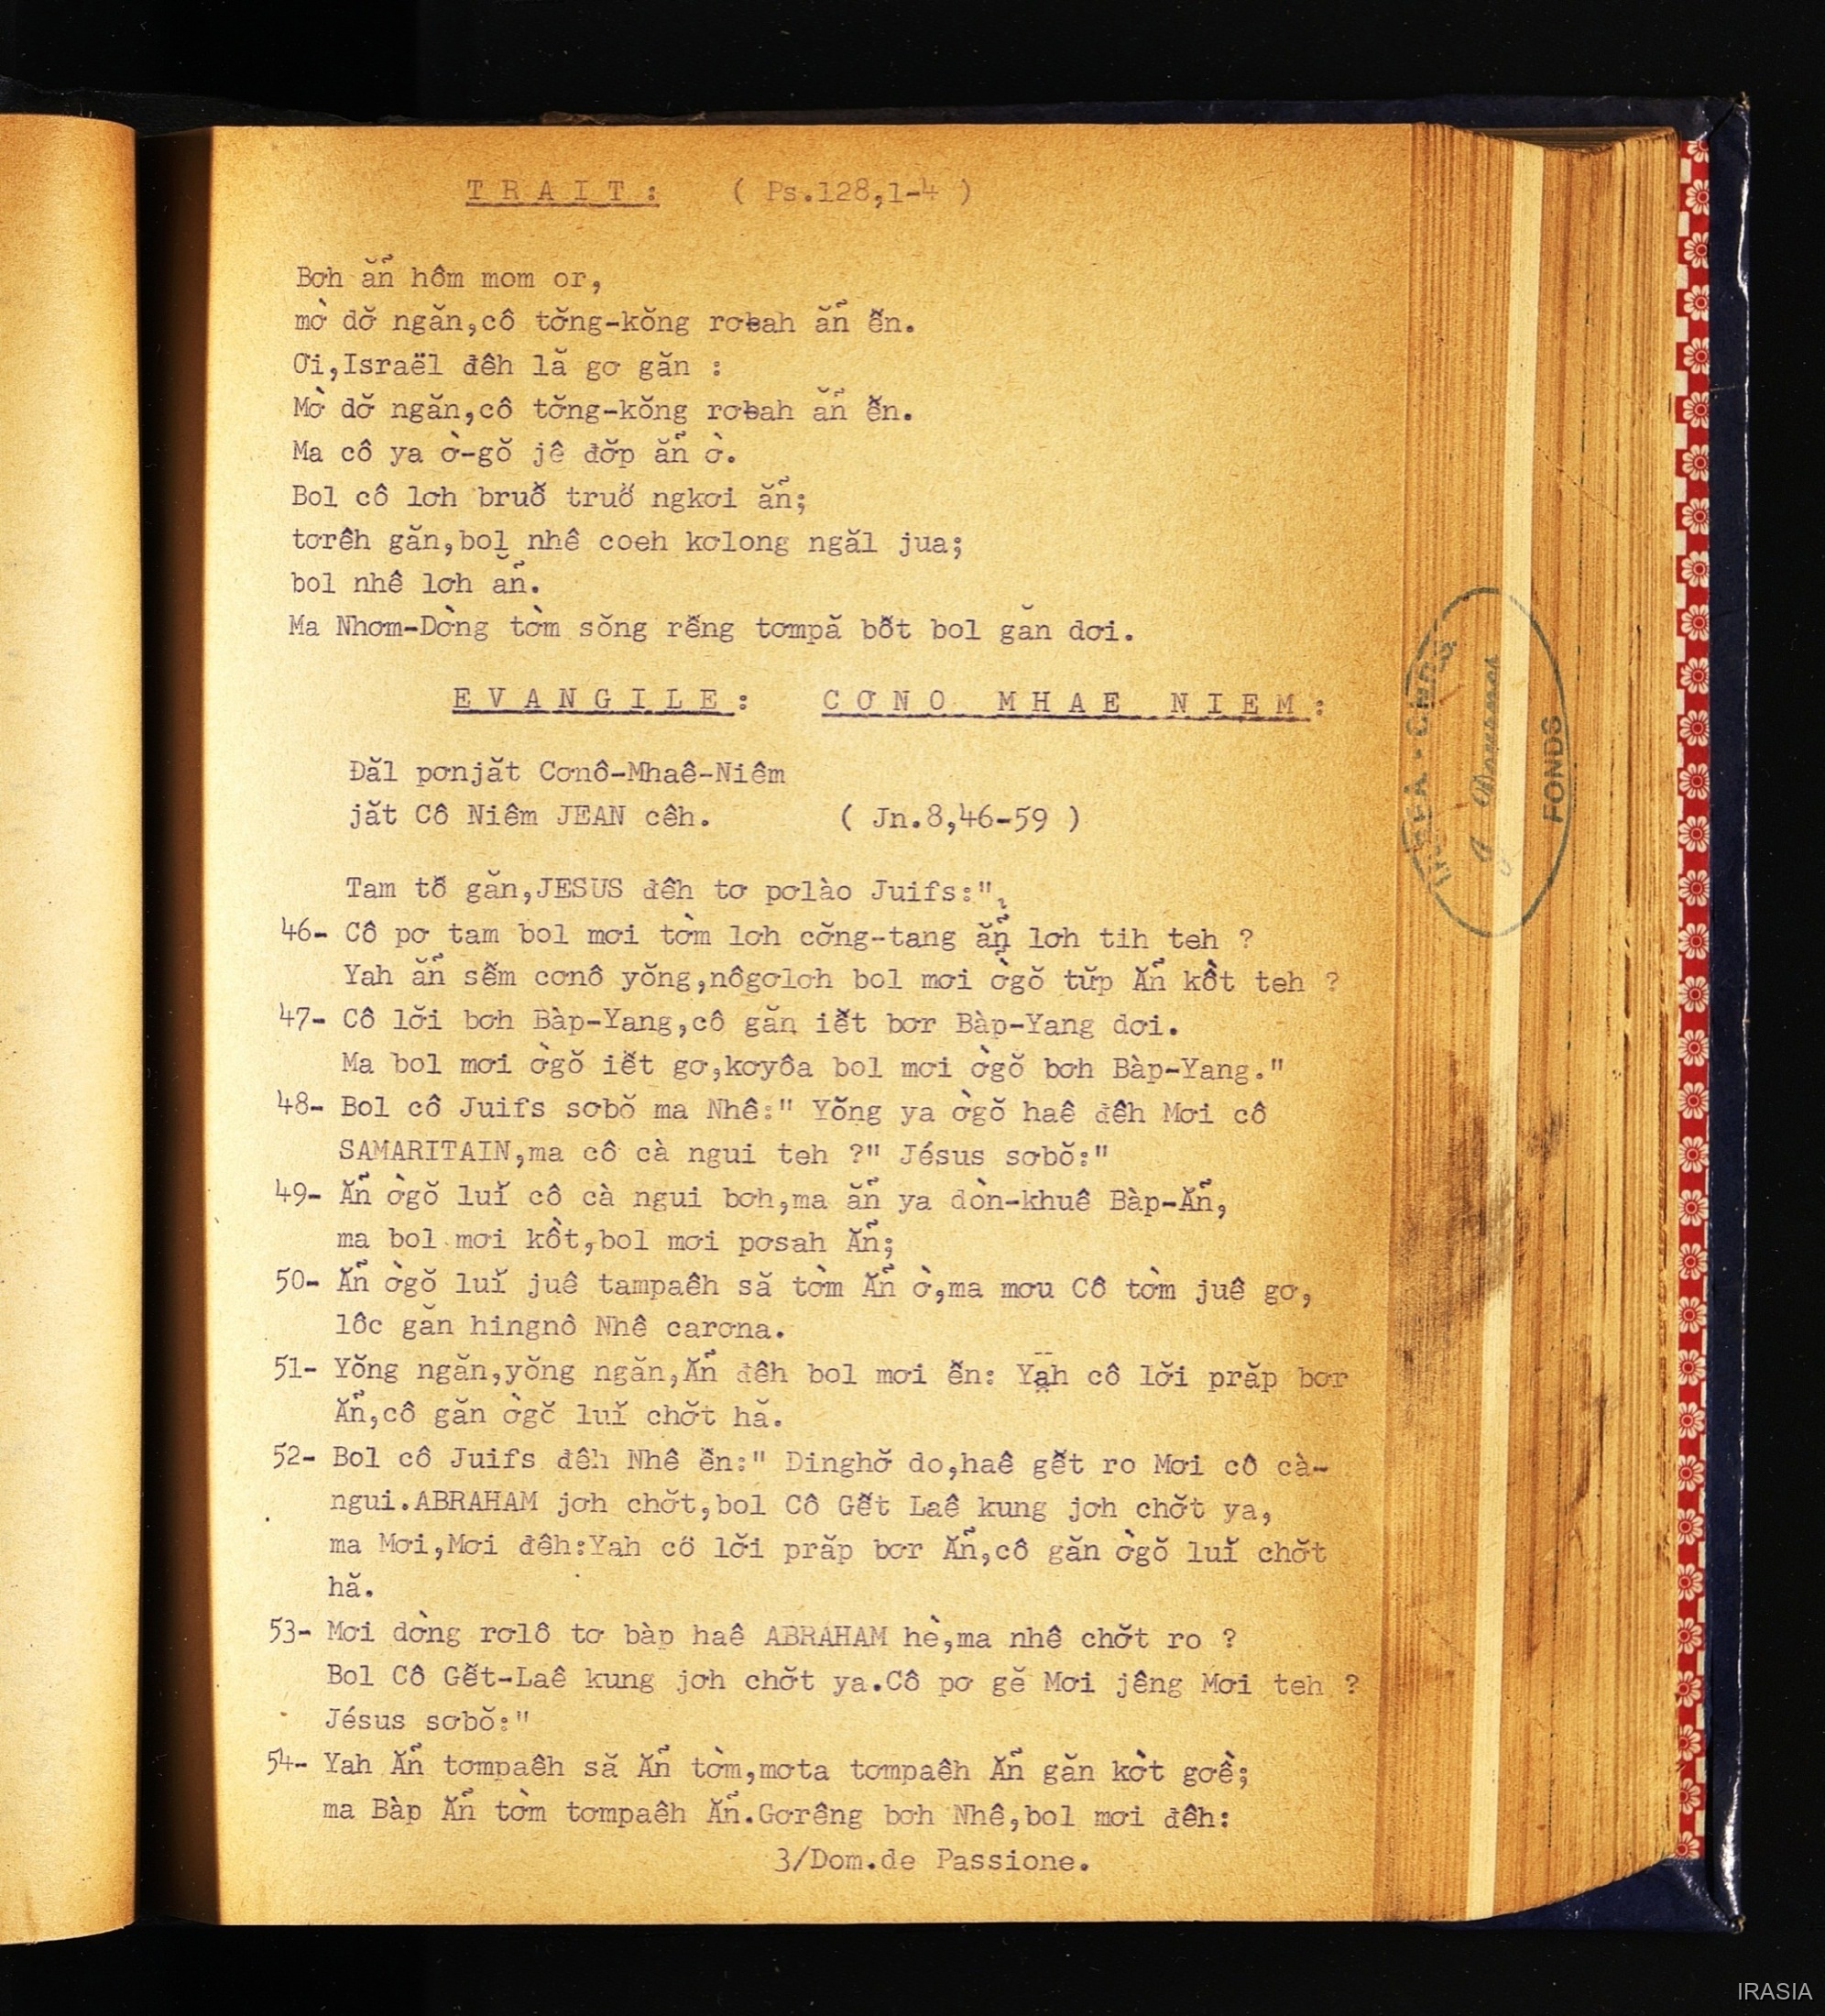 T R A I T :   ( Ps.128,1-4 )
Bơh ăn̉ hôm mom or,
mờ dơ̆ ngăn,cô tơ̆ng-kŏng rơƀah ăn̉ ê̆n.
Ơi,Israël đêh lă gơ găn :
Mờ dơ̆ ngăn,cô tơ̆ng-kŏng rơƀah ăn̉ ê̆n.
Ma cô ya ờ-gŏ jê đơ̆p ăn̉ ờ.
Bol cô lơh bruơ̆ truơ̆ ngkơi ăn̉;
tơrêh găn,bol nhê coeh kơlong ngăl jua;
bol nhê lơh ăn̉.
Ma Nhơm-Dờng tờm sŏng rê̆ng tơmpă bô̆t bol găn dơi.
E V A N G I L E :   C Ơ N O   M H A E   N I E M :
Đăl pơnjăt Cơnô-Mhaê-Niêm
jăt Cô Niêm JEAN cêh.   ( Jn.8,46-59 )
Tam tô̆ găn,JESUS đêh tơ pơlào Juifs:"
46- Cô pơ tam bol mơi tờm lơh cơ̆ng-tang ăn̉ lơh tih teh ?
Yah ăn̉ sê̆m cơnô yŏng,nôgơlơh bol mơi ờgŏ tŭp Ăn̉ kồt teh ?
47- Cô lơ̆i bơh Bàp-Yang,cô găn iê̆t bơr Bàp-Yang dơi.
Ma bol mơi ờgŏ iê̆t gơ,kơyôa bol mơi ờgŏ bơh Bàp-Yang."
48- Bol cô Juifs sơbŏ ma Nhê:" Yŏng ya ờgŏ haê đêh Mơi cô
SAMARITAIN,ma cô cà ngui teh ?" Jésus sơbŏ:"
49- Ăn̉ ờgŏ luĭ cô cà ngui bơh,ma ăn̉ ya dòn-khuê Bàp-Ăn̉,
ma bol mơi kồt,bol mơi pơsah Ăn̉;
50- Ăn̉ ờgŏ luĭ juê tampaêh să tờm Ăn̉ ờ,ma mơu Cô tờm juê gơ,
lôc găn hingnô Nhê carơna.
51- Yŏng ngăn,yŏng ngăn,Ăn̉ đêh bol mơi ê̆n: Yah cô lơ̆i prăp bơr
Ăn̉,cô găn ờgŏ luĭ chơ̆t hă.
52- Bol cô Juifs đêh Nhê ê̆n:" Dinghơ̆ do,haê gê̆t ro Mơi cô cà-
ngui.ABRAHAM jơh chơ̆t,bol Cô Gê̆t Laê kung jơh chơ̆t ya,
ma Mơi,Mơi đêh:Yah cô lơ̆i prăp bơr Ăn̉,cô găn ờgŏ luĭ chơ̆t
hă.
53- Mơi dờng rơlô tơ bàp haê ABRAHAM hè,ma nhê chơ̆t ro ?
Bol Cô Gê̆t-Laê kung jơh chơ̆t ya.Cô pơ gĕ Mơi jêng Mơi teh ?
Jésus sơbŏ:"
54- Yah Ăn̉ tơmpaêh să Ăn̉ tờm,mơta tơmpaêh Ăn̉ găn kờt gơề;
ma Bàp Ăn̉ tờm tơmpaêh Ăn̉.Gơrêng bơh Nhê,bol mơi đêh:
3/Dom.de Passione.
FONDS
IRASIA